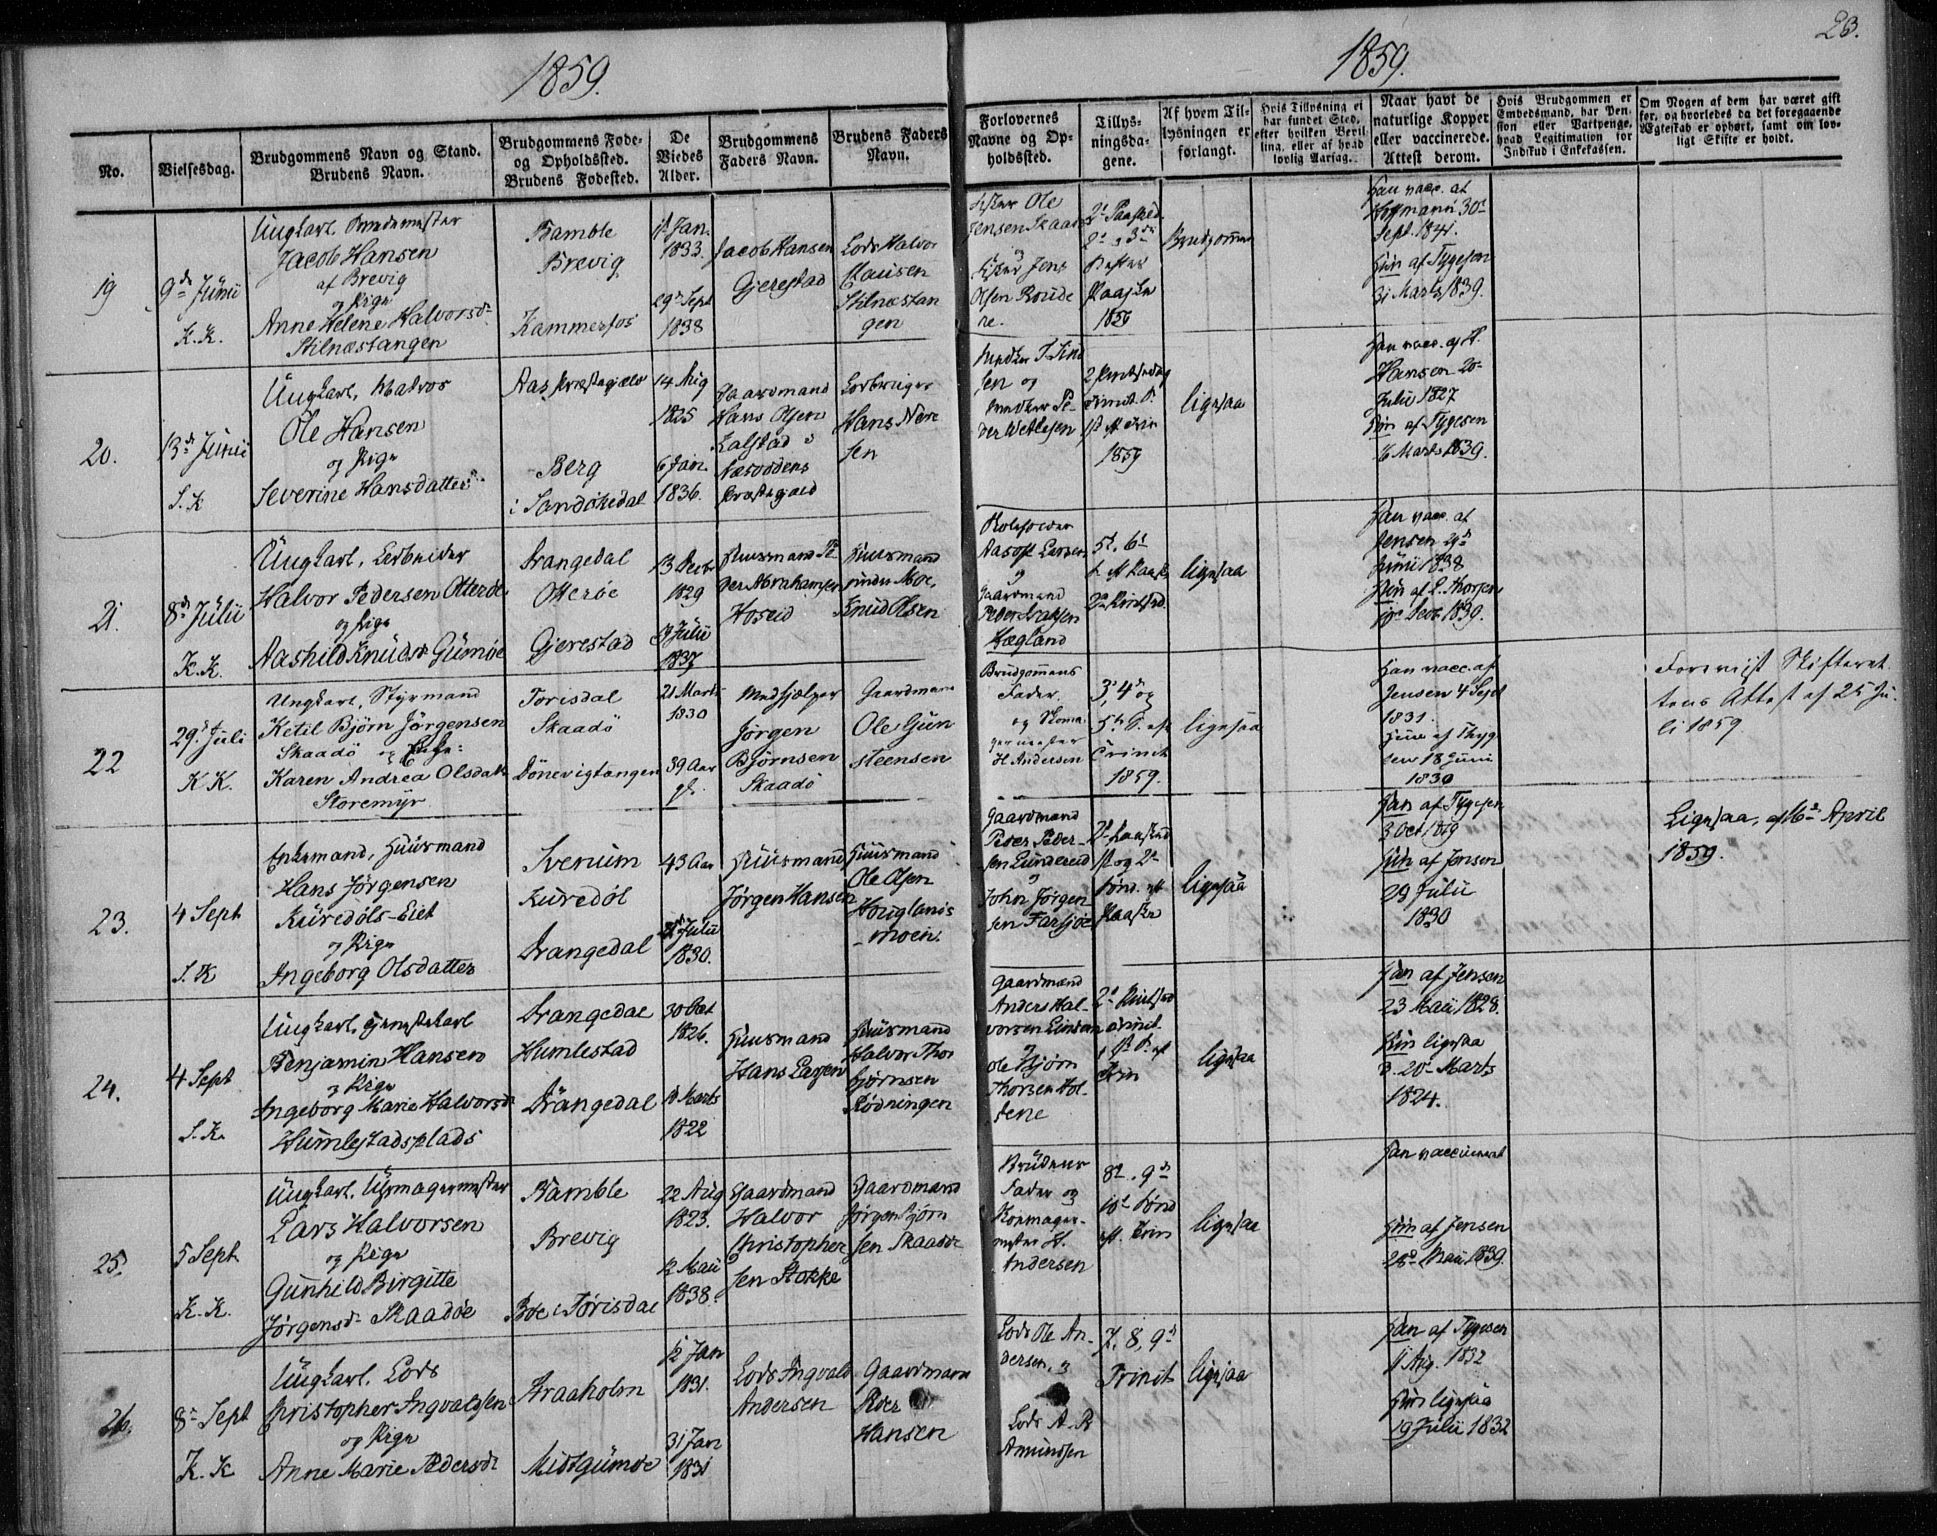 1859.
1859.
23.
No.
Vielsesdag.
Brudgommens Navn og Stand.
Brudens Navn.
Brudgommens Føde-
og Opholdssted.
Brudens Fødested.
De
Viedes
Alder.
Brudgommens
Faders Navn.
Brudens Faders
Navn.
Forlovernes
Navne og Op-
holdssted.
Tillys-
ningsda-
gene.
Af hvem Til-
lysningen er
forlangt.
Hvis Tillysning ei
har fundet Sted,
efter hvilken Bevil-
ling, eller af hvad
lovlig Aarsag.
Naar havt de
naturlige Kopper
eller vaccinerede.
Attest derom.
Hvis Brudgommen er
Embedsmand, har Pen-
sion eller Vartpenge,
hvad Legitimation for
Indskud i Enkekassen.
Om Nogen af dem har været gift
før, og hvorledes da det foregaaende
Ægteskab er ophørt, samt om lov-
ligt Skifte er holdt.
19
9de Junii
K. K.
Ungkarl
Jacob Hansen
af Brevig
og Pige
Anne Helene Halvorsdr
Stilnæstangen
Bamble
Brevig
Kammerfos
Jan.
1833.
29de Sept
1838
Jacob Hansen
Gjerestad
Lods Halvor
Clausen
Stilnæstan
gen
Ole
Jensen Skaadø
og
Jens
Olsen
Paaske
1859
Brudgommen
Han vacc. af
Homann 30te
Sept. 1841.
Hun af Tygesen
31 Marts 1839.
20.
13de Junii
S. K
Ungkarl, Matros
Ole Hansen
og Pige
Severine Hansdatter
Aas Præstegjæld
Berg
i Sandøkedal
14 Aug
1825
6 Jan.
1836.
Gaardmand
Hans Olsen
Næsoddens
Præstegjæld
Hans
sen
og
1859
ligesaa
Han vacc. af
Hansen 20
Julii 1827
Hun af Tygesen
16 Marts 1839.
21.
8de Julii
K. K.
Ungkarl, Arbeider
Halvor Pedersen Otterøe
og Pige
Aashild Knudsdr Gumøe
Drangedal
Otterøe
Gjerestad
13 Decbr
1829
Julii
1837
Huusmand Pe
der Abrahamsen
Hoseid
Huusmand
under Moe,
Knud Olsen
Aasolf Larsen
og
Gaardmand
Peder Isaksen
Hægland
5te, 6te
ligesaa
Han vacc. af
Jensen 29de
Junii 1838
Hun af L. Thorsen
Decb. 1839.
22
29de Juli
K K.
Ungkarl, Styrmand
Ketil Bjørn Jørgensen
Skaadø og Enke:
Karen Andrea Olsdatter
Storemyr
Torisdal
Skaadö
Dönevigtangen
21 Marts
1830
39 Aar
gl.
Medhjælper
Jørgen
Bjørnsen
Skaadö
Gaardmand
Ole Gun
steensen
Brudgommens
Fader,
og Skoma-
germester
H. Andersen
3, 4de og
5te S. eft
Trinit
1859.
ligesaa
Han vacc. af
Jensen 4 Sept
1831.
Hun af Thyg
sen 18 Juni
1830
Forevist Skifteret-
tens Attest af 25 Ju-
li 1859
23.
4 Sept
S. K
Enkemand, Huusmand
Hans Jørgensen
Kuredøls-Eiet
og Pige
Ingeborg Olsdatter
Sverum
Kuredøl
Drangedal
43 Aar
Julii
1830.
Huusmand
Jørgen Hansen
Huusmand
Ole Olsen
Houglans-
moen.
Gaardmand
Peder Peder-
sen Lundereid
og
John Jørgen
sen Farsjøe
og 2den
Sønd. eft
Paaske
ligesaa
Han af Tygesen
3 Oct 1819
Hun af Jensen
29 Julii
1830
Ligesaa, af 16de April
1859.
24.
4 Sept
S. K.
Ungkarl, Tjenestekarl
Benjamin Hansen
og Pige
Ingeborg Marie Halvorsdr
Humlestadsplads
Drangedal
Humlestad
Drangedal
30 Oct
1826.
Marts
1822
Huusmand
Hans Larsen
Huusmand
Halvor Thor
bjørnsen
Rødningen
Gaardmænd
Anders Hal-
vorsen
og
Ole Bjørn
Thorsen Hol-
tene
ligesaa
Han af Jensen
23 Mai 1828.
Hun ligesaa
d. 20de Marts
1824.
25.
5 Sept
K. K.
Ungkarl, Uhrmagermester
Lars Halvorsen
og Pige
Gunhild Birgitte
Jørgensdr Skaadøe
Bamble
Brevig
Bøe i Torisdal
22 Aug
1823.
12 Maii
1838.
Gaardmand
Halvor
Christopher
sen Stokke
Gaardmand
Jørgen Bjørn
sen Skaadøe
Brudens
Fader og
Skomager-
mester H.
Andersen
8de, 9de
10de Sønd
eft. Trin
ligesaa
Han vaccineret
Hun af Jensen
28de Maii 1839.
26.
8de Sept
K. K
Ungkarl, Lods
Christopher Ingvaldsen
og Pige
Anne Marie Pedersdr
Kraaholm
Midtgumøe
12 Jan
1831.
31 Jan
1831
Lods Ingvald
Andersen
Gaardmand
Peder
Hansen
Lods Ole An-
dersen, og
Lods A. R
Amundsen
7, 8, 9de
Trinit
ligesaa
Han af Tygesen
11 Aug. 1832
Hun ligesaa
19 Julii 1832